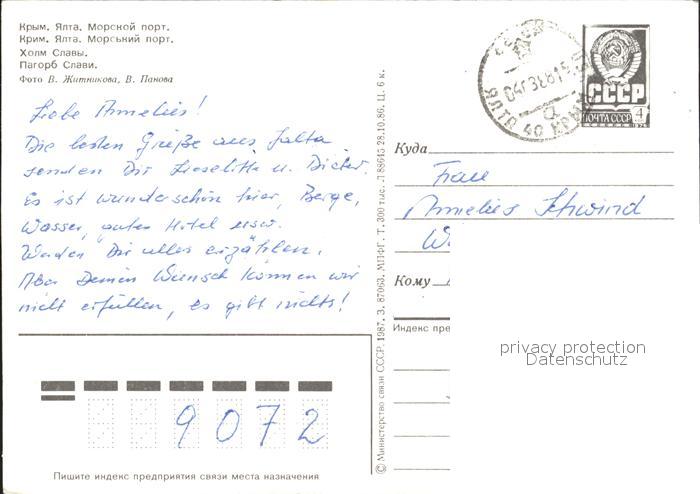 Крым. Ялта. Морской порт.
Крим. Ялта. Морський порт.
Холм Славы.
Пагорб Слави.
Фото В. Житникова, В. Панова
Liebe Annelies!
Die besten Grüße aus Jalta
senden Dir Lieselotte u. Dieter.
Es ist wunderschön hier, Berge,
Wasser, gutes Hotel usw.
Werden Dir alles erzählen.
Aber Deinen Wunsch können wir
nicht erfüllen, es gibt nichts!
9072
Пишите индекс предприятия связи места назначения
© Министерство связи СССР. 1987. З. 87063. МПФГ. Т. 300 тыс. Л 88645 28.10.86. Ц. 6 к.
ЯЛТА
СССР
ПОЧТА СССР 4
Куда
Frau
Annelies Schwind
Кому
Индекс пре
privacy protection
Datenschutz